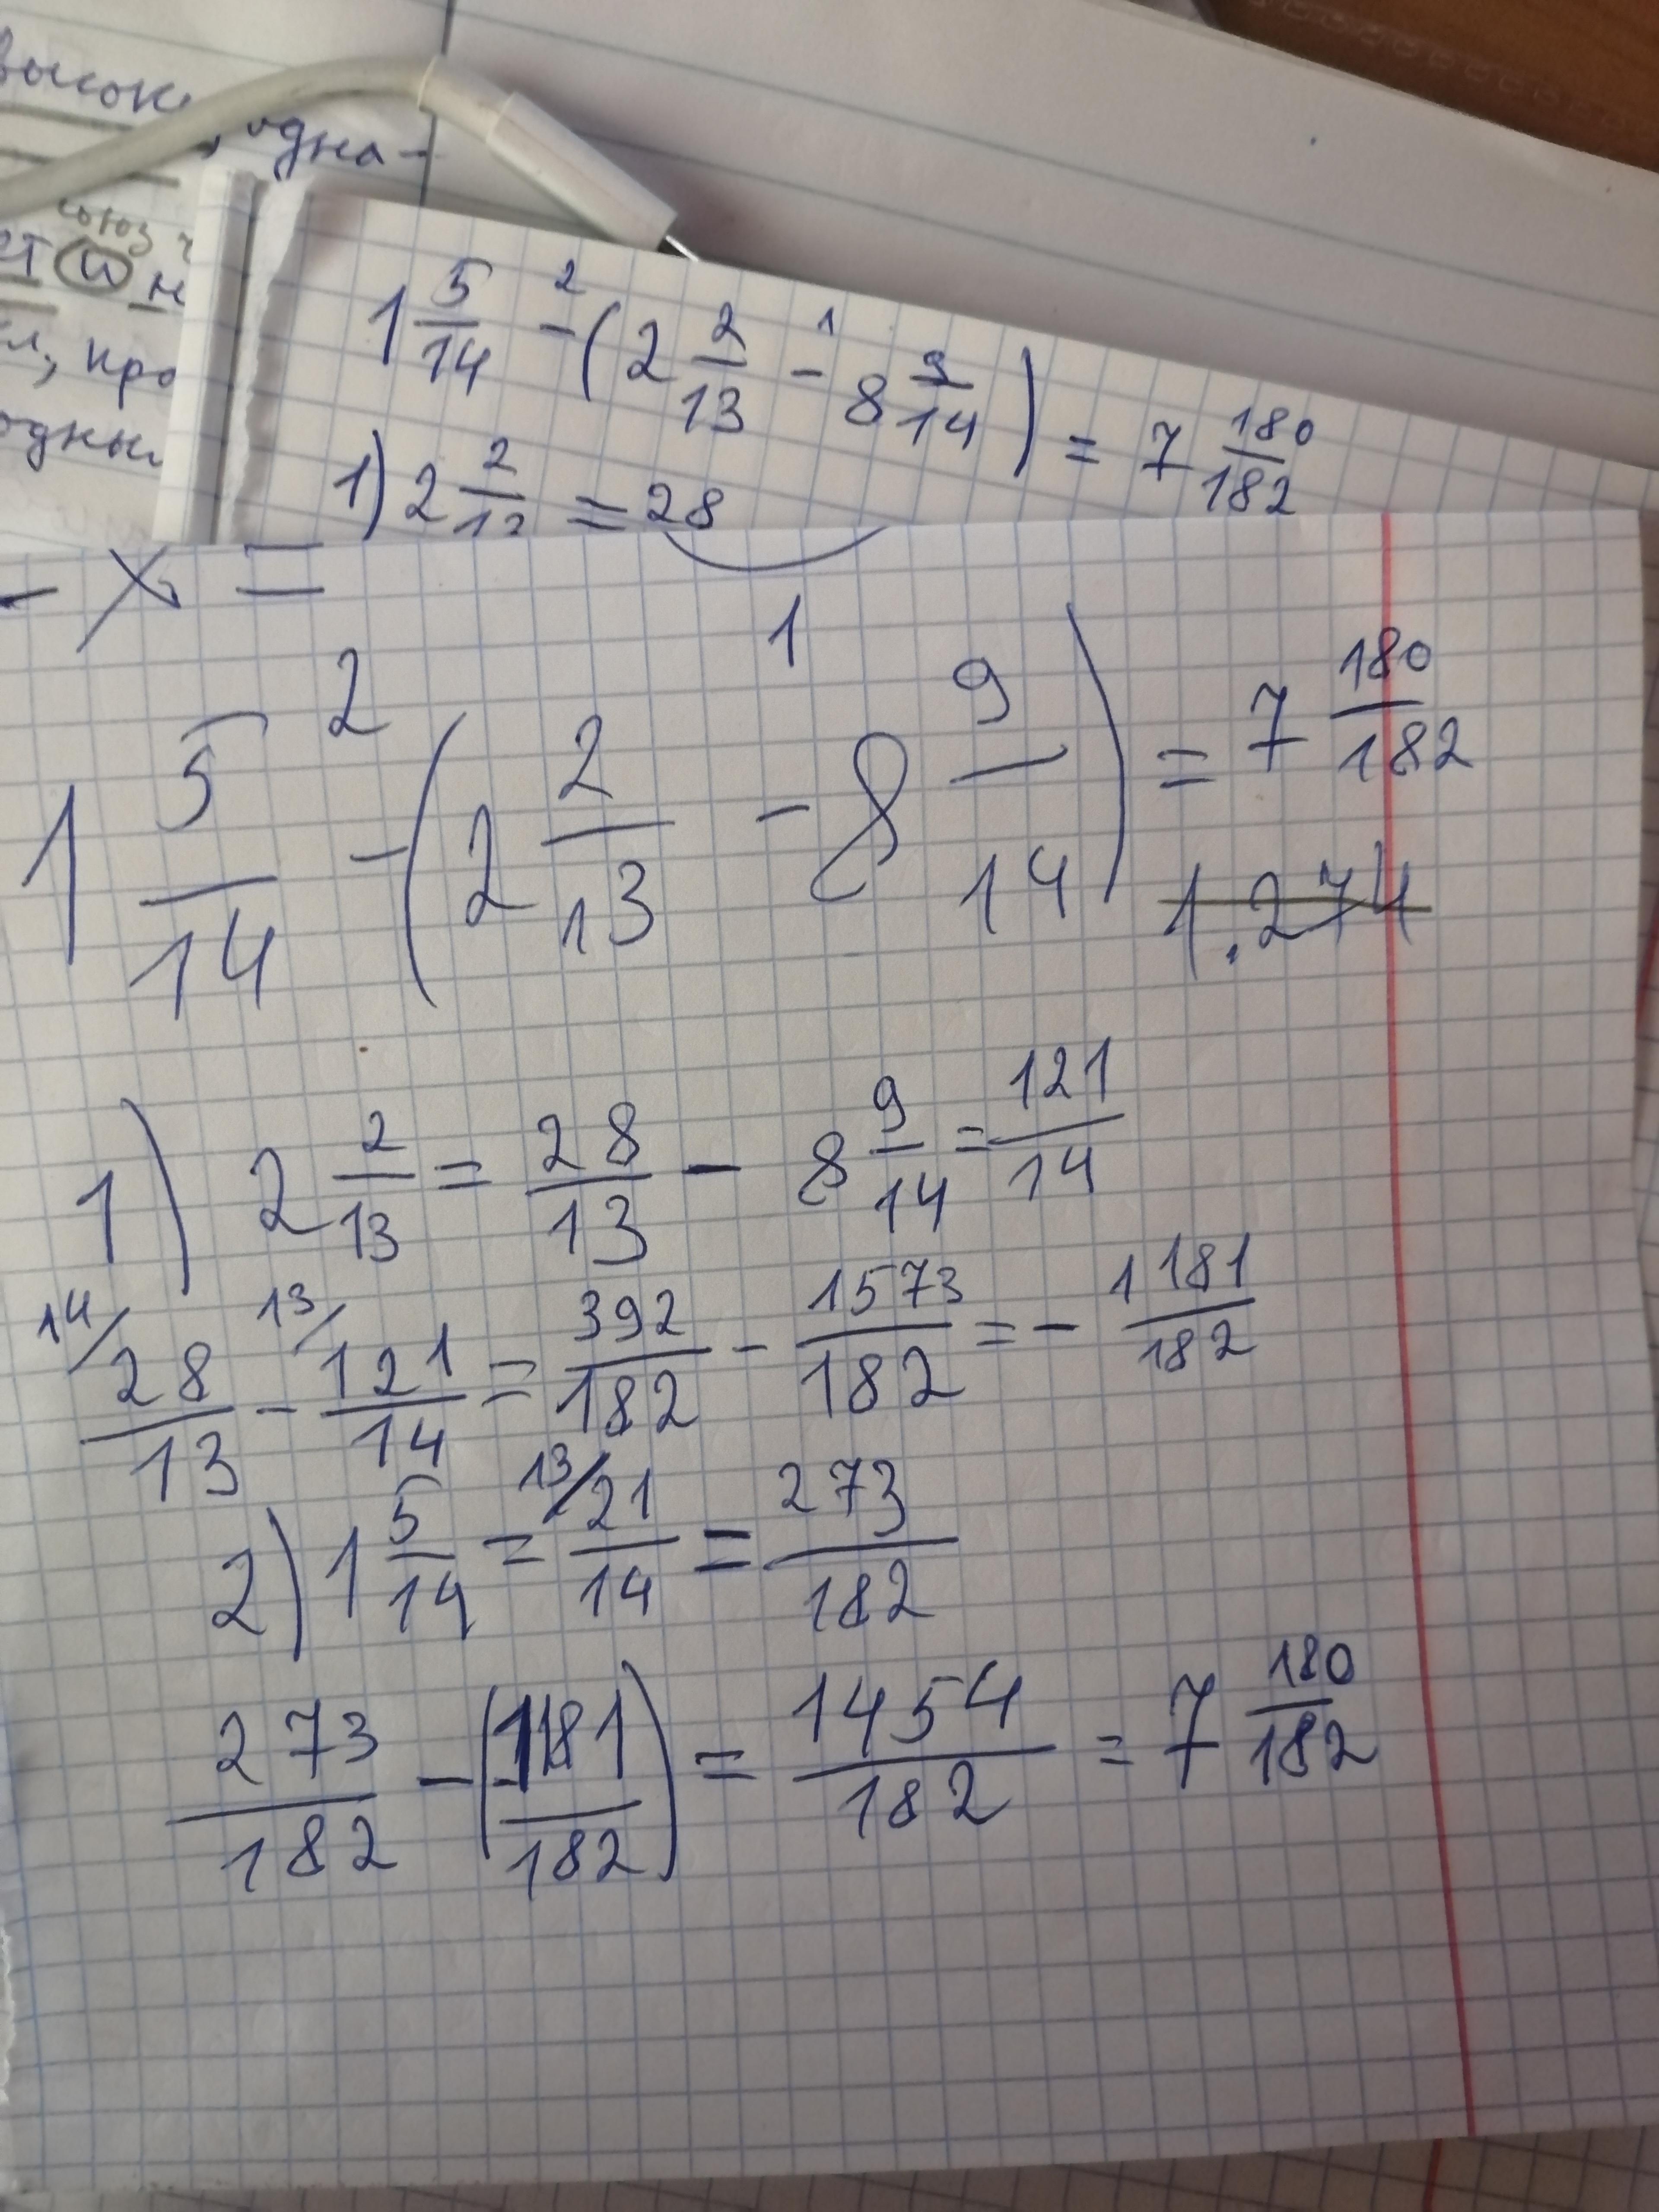 высок
, одна-
союз
ет и н
л, кро
одны
1 5/14 - (2 2/13 - 8 9/14) = 7 180/182
2 1
1) 2 2/13 = 28
- x =
2 1
1 5/14 - (2 2/13 - 8 9/14) = 7 180/182
1.274
1) 2 2/13 = 28/13 - 8 9/14 = 121/14
14/ 28/13 - 13/ 121/14 = 392/182 - 1573/182 = - 1181/182
2) 1 5/14 = 13/ 21/14 = 273/182
273/182 - (-1181/182) = 1454/182 = 7 180/182